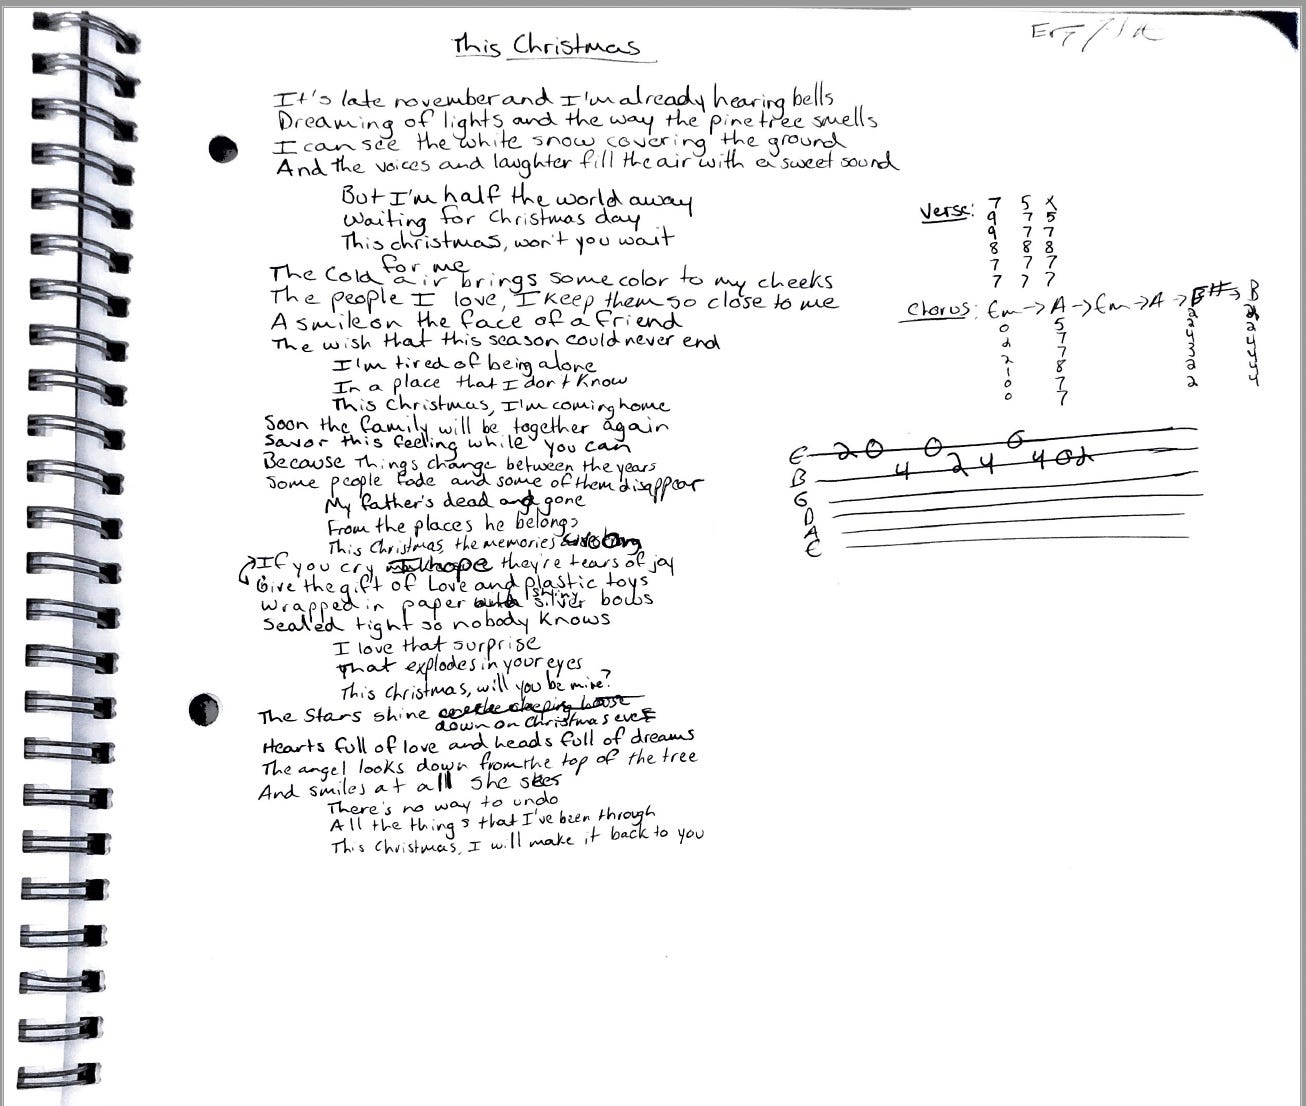 This Christmas
It's late november and I'm already hearing bells
Dreaming of lights and the way the pine tree smells
I can see the white snow covering the ground
And the voices and laughter fill the air with a sweet sound
But I'm half the world away
Waiting for Christmas day
This christmas, won't you wait
for me
The cold air brings some color to my cheeks
The people I love, I keep them so close to me
A smile on the face of a friend
The wish that this season could never end
I'm tired of being alone
In a place that I don't know
This Christmas, I'm coming home
Soon the family will be together again
Savor this feeling while you can
Because things change between the years
Some people fade and some of them disappear
My father's dead and gone
From the places he belongs
This Christmas, the memories
If you cry hope they're tears of joy
Give the gift of Love and plastic toys
shiny
Wrapped in paper silver bows
Sealed tight so nobody knows
I love that surprise
That explodes in your eyes
This Christmas, will you be mine?
The Stars shine
down on Christmas eve
Hearts full of love and heads full of dreams
The angel looks down from the top of the tree
And smiles at all she sees
There's no way to undo
All the things that I've been through
This Christmas, I will make it back to you
Verse: 7 5 X
9 7 5
9 7 7
8 8 8
7 7 7
7 7 7
Chorus: Em → A → Em → A → F# → B
0 5 2 2
2 7 4 2
2 7 4 4
1 8 3 4
0 7 2 4
0 7 2
E 2 0 0 0
B 4 2 4 4 0 2
G
D
A
E